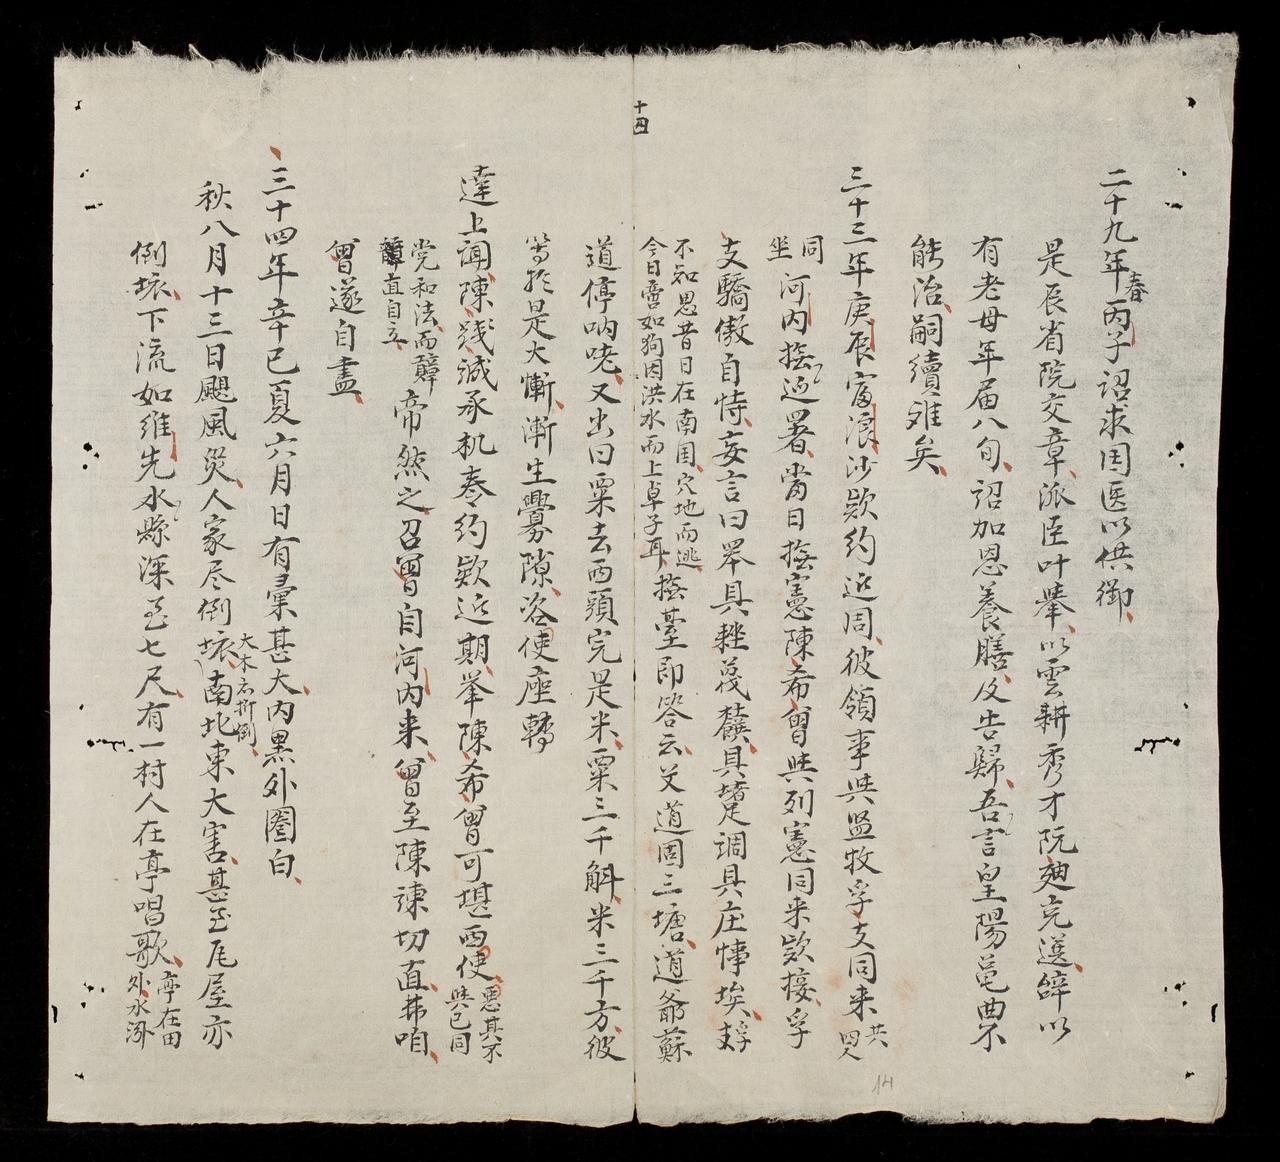 二十九年春丙子詔求国医以供御
是辰省院交章派臣叶舉以雲耕秀才阮廸克選辞以
有老母年届八旬詔加恩養膳及告歸吾言皇陽邑曲不
能治嗣續难矣
三十三年庚辰富浪沙欵約近周彼領事共盟牧孚支同来共四人
同坐河内撫廵署當日撫憲陳希曾共列憲同来欵接孚
支驕傲自恃妄言曰罘具
調具庄悖埃孚支
不知思昔日在南国穴地而逃
今日啻如狗因洪水而上卓子耳撫臺即答云艾道固三塘道爺蘇
道停呐咾又出曰粟去西頭完是米粟三千斛米三千方彼
等於是大慚漸生釁隙咨使座轉
達上闻陳踐誠承机奏約欵近期举陳希曾可堪西使惡其不共己同
党和法而贛直自立帝然之召曾自河内来曾至陳諫切直弗咱
曾遂自盡
三十四年辛巳夏六月日有彙甚大内黑外圈白
秋八月十三日颶風災人家尽倒壊大木亦折倒南北東大害甚至瓦屋亦
倒壊下流如維先水縣深至七尺有一村人在亭唱歌亭在田外水
十四
14